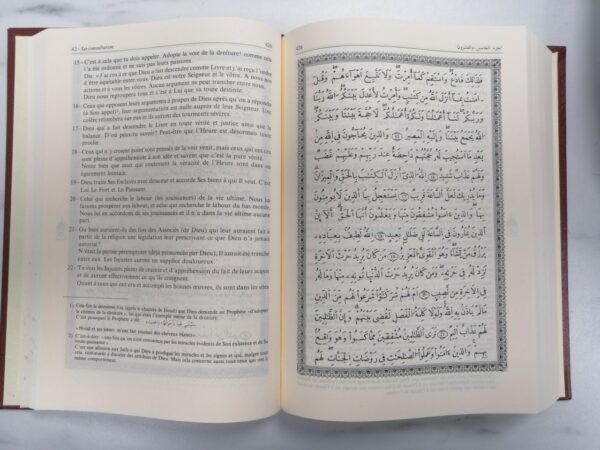 42 - La consultation 426
15 - C'est à cela que tu dois appeler. Adopte la voie de la droiture¹ comme cela
t'a été ordonné et ne suis pas leurs passions.
Dis: «J'ai cru à ce que Dieu a fait descendre comme Livre et j'ai reçu l'ordre
d'être équitable entre vous. Dieu est notre Seigneur et le vôtre. A nous nos
actions et à vous les vôtres. Aucun argument ne peut trancher entre nous.
Dieu nous regroupera tous et c'est à Lui que sera toute destinée.
16 - Ceux qui opposent leurs arguments à propos de Dieu après qu'on a répondu
(à Son appel)², leur argumentation est nulle auprès de leur Seigneur. Une
colère retombera sur eux et ils auront de durs tourments.
17 - Dieu qui a fait descendre le Livre en toute vérité et justice ainsi que la
balance. D'où peux-tu savoir? Peut-être que l'Heure est désormais toute
proche.
18 - Ceux qui n'y croient point sont pressés de la voir venir, mais ceux qui ont cru
sont pleins d'appréhension à son idée et savent que c'est la pure vérité.
Notre bien que ceux qui contestent la véracité de l'Heure sont dans un
égarement lointain.
19 - Dieu traite Ses Esclaves avec douceur et accorde Ses biens à qui Il veut. C'est
Lui Le Fort et Le Puissant.
20 - Celui qui recherche le labour (les jouissances) de la vie ultime, Nous lui
faisons prospérer son labour, et celui qui recherche le labour du bas monde,
Nous lui en accordons de ses jouissances et il n'a dans la vie ultime aucune
part.
21 - Ou bien auraient-ils des fois des Associés (de Dieu) qui leur auraient fait à
partir de la religion une législation leur prescrivant ce que Dieu n'a jamais
autorisé?
N'était la parole péremptoire (déjà prononcée par Dieu), Il aurait été tranché
entre eux. Les Injustes auront un supplice douloureux.
22 - Tu vois les Injustes pleins de crainte et d'appréhension du fait de leurs acquis
et ils auront effectivement ce qu'ils craignent.
Quant à ceux qui ont cru et accompli les bonnes œuvres, ils sont dans les
الجزء الخامس والعشرون 426
فَلِذَٰلِكَ فَادْعُ وَاسْتَقِمْ كَمَا أُمِرْتَ وَلَا تَتَّبِعْ أَهْوَاءَهُمْ وَقُلْ
ءَامَنتُ بِمَا أَنزَلَ اللَّهُ مِن كِتَٰبٍ وَأُمِرْتُ لِأَعْدِلَ بَيْنَكُمُ اللَّهُ رَبُّنَا
وَرَبُّكُمْ لَنَا أَعْمَٰلُنَا وَلَكُمْ أَعْمَٰلُكُمْ لَا حُجَّةَ بَيْنَنَا وَبَيْنَكُمُ
اللَّهُ يَجْمَعُ بَيْنَنَا وَإِلَيْهِ الْمَصِيرُ ١٥ وَالَّذِينَ يُحَاجُّونَ فِي اللَّهِ مِن
بَعْدِ مَا اسْتُجِيبَ لَهُ حُجَّتُهُمْ دَاحِضَةٌ عِندَ رَبِّهِمْ وَعَلَيْهِمْ غَضَبٌ
وَلَهُمْ عَذَابٌ شَدِيدٌ ١٦ اللَّهُ الَّذِي أَنزَلَ الْكِتَٰبَ بِالْحَقِّ وَالْمِيزَانَ
وَمَا يُدْرِيكَ لَعَلَّ السَّاعَةَ قَرِيبٌ ١٧ يَسْتَعْجِلُ بِهَا الَّذِينَ لَا يُؤْمِنُونَ
بِهَا وَالَّذِينَ ءَامَنُوا مُشْفِقُونَ مِنْهَا وَيَعْلَمُونَ أَنَّهَا الْحَقُّ أَلَا إِنَّ
الَّذِينَ يُمَارُونَ فِي السَّاعَةِ لَفِي ضَلَٰلٍ بَعِيدٍ ١٨ اللَّهُ لَطِيفٌ بِعِبَادِهِ
يَرْزُقُ مَن يَشَاءُ وَهُوَ الْقَوِيُّ الْعَزِيزُ ١٩ مَن كَانَ يُرِيدُ حَرْثَ الْآخِرَةِ
نَزِدْ لَهُ فِي حَرْثِهِ وَمَن كَانَ يُرِيدُ حَرْثَ الدُّنْيَا نُؤْتِهِ مِنْهَا وَمَا لَهُ فِي
الْآخِرَةِ مِن نَّصِيبٍ ٢٠ أَمْ لَهُمْ شُرَكَٰؤُا شَرَعُوا لَهُم مِّنَ الدِّينِ
مَا لَمْ يَأْذَن بِهِ اللَّهُ وَلَوْلَا كَلِمَةُ الْفَصْلِ لَقُضِيَ بَيْنَهُمْ وَإِنَّ الظَّٰلِمِينَ
لَهُمْ عَذَابٌ أَلِيمٌ ٢١ تَرَى الظَّٰلِمِينَ مُشْفِقِينَ مِمَّا كَسَبُوا وَهُوَ وَاقِعٌ
بِهِمْ وَالَّذِينَ ءَامَنُوا وَعَمِلُوا الصَّٰلِحَٰتِ فِي رَوْضَاتِ الْجَنَّاتِ لَهُم